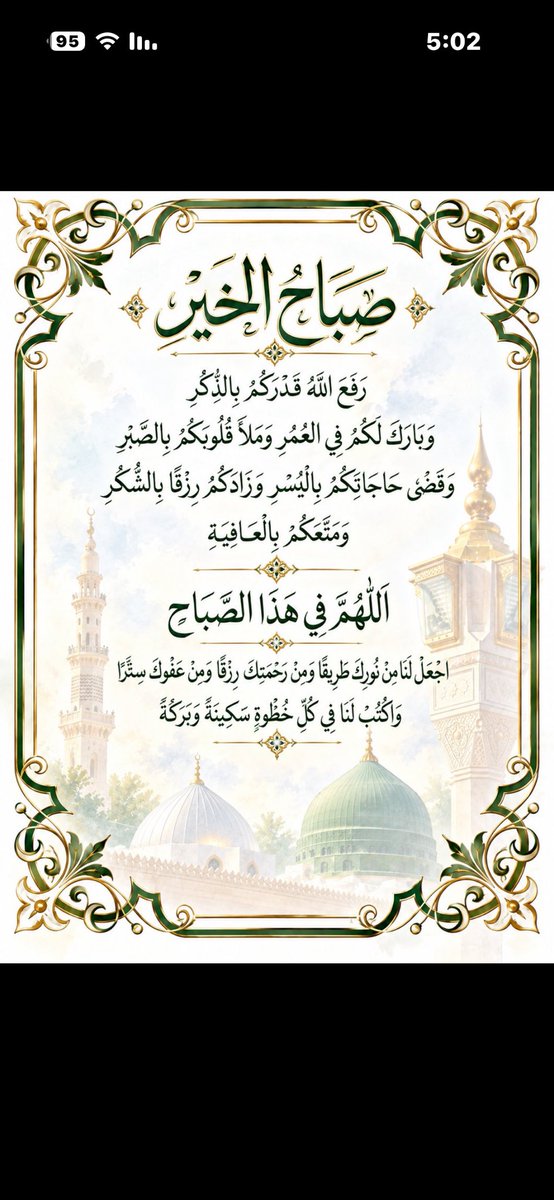 95
5:02
صَبَاحُ الخَيْرِ
رَفَعَ اللَّهُ قَدْرَكُمْ بِالذِّكْرِ
وَبَارَكَ لَكُمْ فِي العُمُرِ وَمَلأَ قُلُوبَكُمْ بِالصَّبْرِ
وَقَضَىٰ حَاجَاتِكُمْ بِالْيُسْرِ وَزَادَكُمْ رِزْقًا بِالشُّكْرِ
وَمَتَّعَكُمْ بِالْعَافِيَةِ
اَللّٰهُمَّ فِي هَذَا الصَّبَاحِ
اجْعَلْ لَنَا مِنْ نُورِكَ طَرِيقًا وَمِنْ رَحْمَتِكَ رِزْقًا وَمِنْ عَفْوِكَ سِتْرًا
وَاكْتُبْ لَنَا فِي كُلِّ خُطْوَةٍ سَكِينَةً وَبَرَكَةً